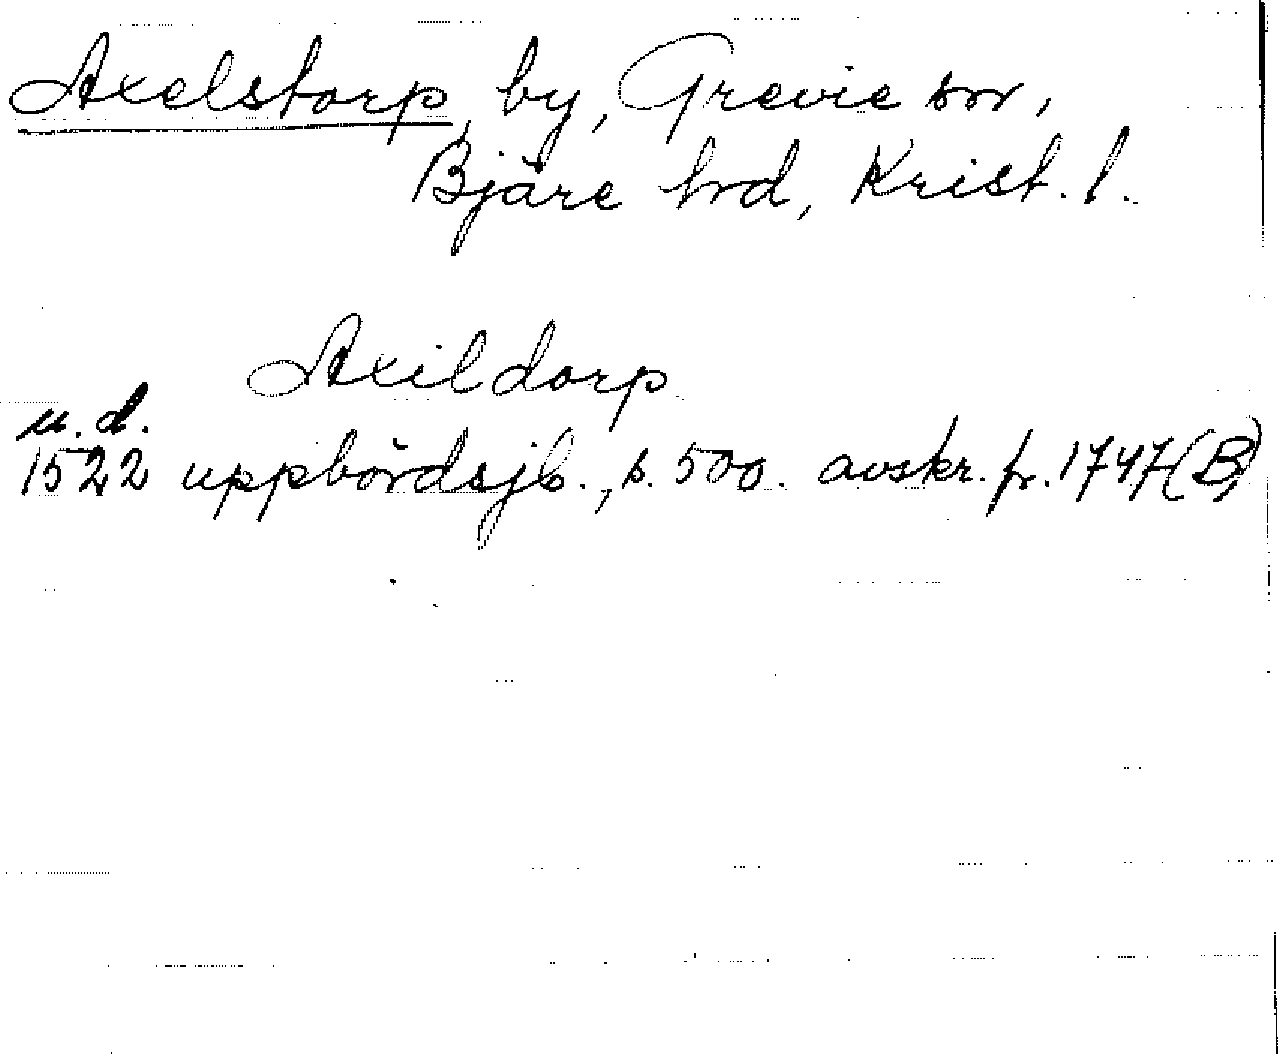 Axelstorp, by, Grevie sn,
Bjäre hrd, Krist. l.
Axildorp
u. d.
1522 uppbördsjb., s. 500. avskr. fr. 1747 (B)